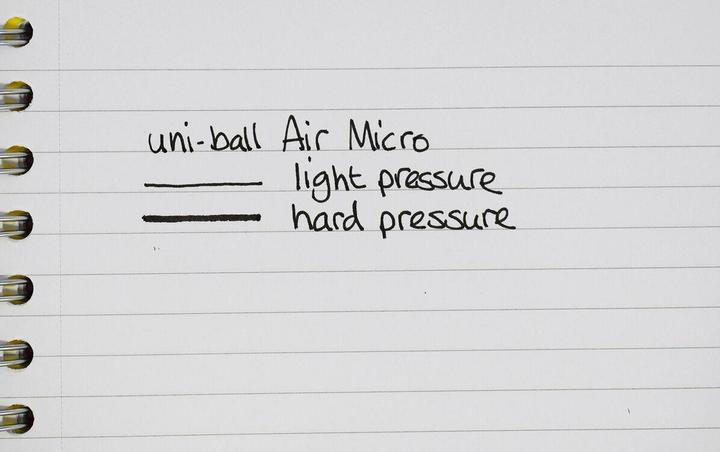 uni-ball Air Micro
light pressure
hard pressure